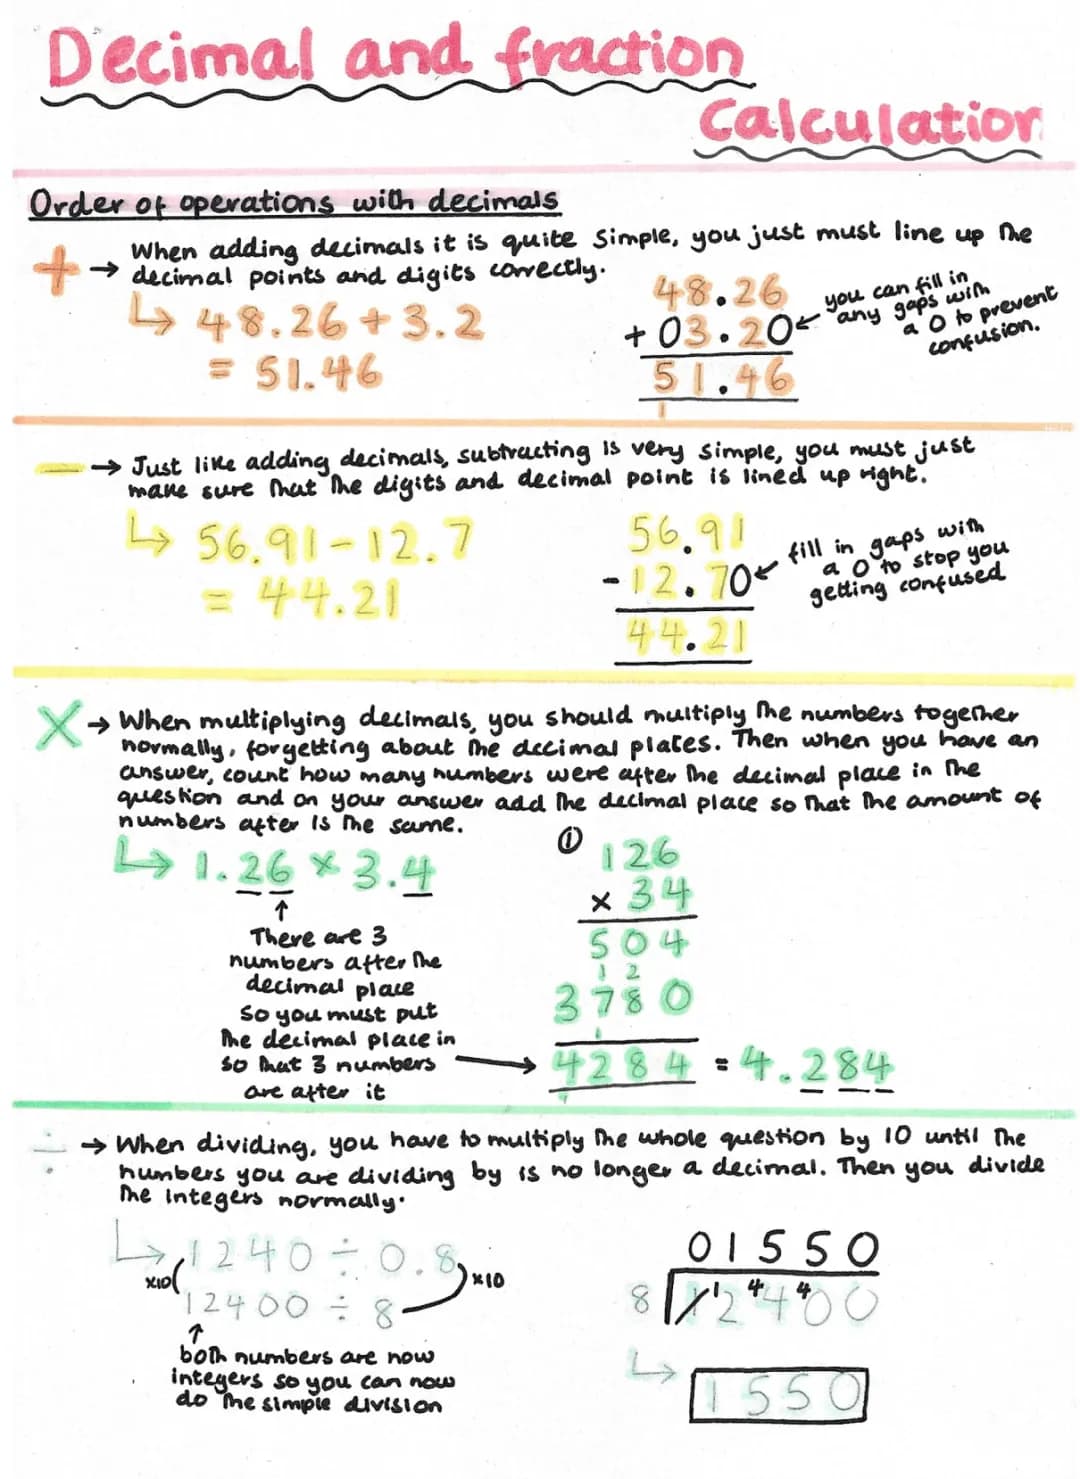 Decimal and fraction
Calculation
Order of operations with decimals
+ → When adding decimals it is quite simple, you just must line up the
decimal points and digits correctly.
↳ 48.26 + 3.2
= 51.46
48.26
+ 03.20
51.46
1
you can fill in
any gaps with
a 0 to prevent
confusion.
− → Just like adding decimals, subtracting is very simple, you must just
make sure that the digits and decimal point is lined up right.
↳ 56.91 - 12.7
= 44.21
56.91
- 12.70
44.21
fill in gaps with
a 0 to stop you
getting confused
× → When multiplying decimals, you should multiply the numbers together
normally, forgetting about the decimal places. Then when you have an
answer, count how many numbers were after the decimal place in the
question and on your answer add the decimal place so that the amount of
numbers after is the same.
↳ 1.26 × 3.4
↑
There are 3
numbers after the
decimal place
so you must put
the decimal place in
so that 3 numbers
are after it
①
126
× 34
504
1 2
3780
1
4284 = 4.284
1
÷ → When dividing, you have to multiply the whole question by 10 until the
numbers you are dividing by is no longer a decimal. Then you divide
the integers normally.
↳ 1240 ÷ 0.8
×10 ×10
12400 ÷ 8
↑
both numbers are now
integers so you can now
do the simple division
01550
8 1 12 44 40 0
↳ 1550